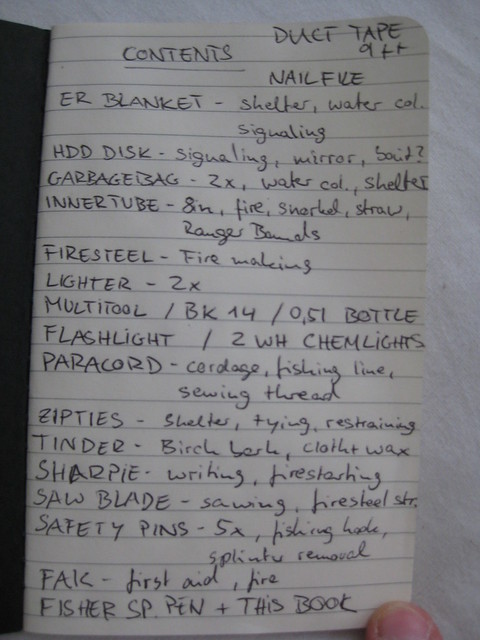 DUCT TAPE
9 ft
CONTENTS
NAILFILE
ER BLANKET - shelter, water col.
signaling
HDD DISK - signaling, mirror, bait?
GARBAGEBAG - 2x, water col., shelter
INNERTUBE - 8in, fire, snorkel, straw,
Ranger Bands
FIRESTEEL - Fire making
LIGHTER - 2x
MULTITOOL / BK 14 / 0,5l BOTTLE
FLASHLIGHT / 2 WH CHEMLIGHTS
PARACORD - cordage, fishing line,
sewing thread
ZIPTIES - shelter, tying, restraining
TINDER - Birch bark, cloth+wax
SHARPIE - writing, firestarting
SAW BLADE - sawing, firesteel str.
SAFETY PINS - 5x, fishing hook,
splinter removal
FAK - first aid, fire
FISHER SP. PEN + THIS BOOK